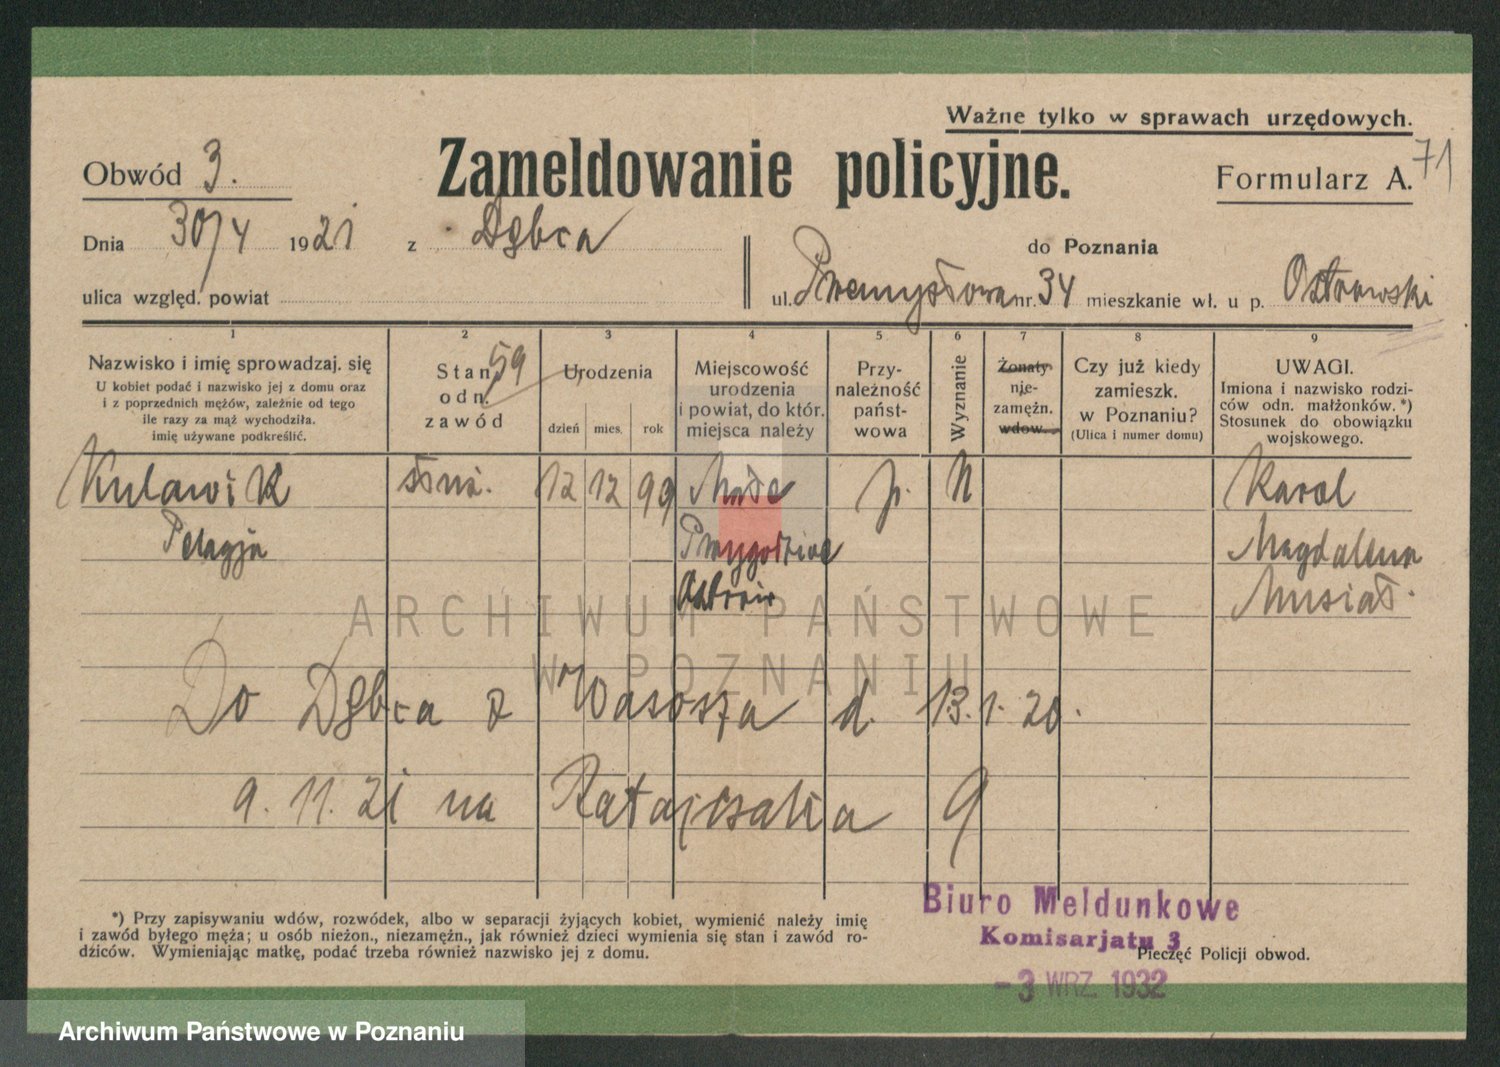 Ważne tylko w sprawach urzędowych.
Obwód 3.
Zameldowanie policyjne.
Formularz A. 71
Dnia 30/4 1921 z Dębca
do Poznania
ulica względ. powiat
ul. Przemysłowa nr. 34 mieszkanie wł. u p. Ostrowski
1 2 3 4 5 6 7 8 9
Nazwisko i imię sprowadzaj. się
U kobiet podać i nazwisko jej z domu oraz
i z poprzednich mężów, zależnie od tego
ile razy za mąż wychodziła.
imię używane podkreślić.
Stan
odn.
zawód
59
Urodzenia
dzień mies. rok
Miejscowość
urodzenia
i powiat, do któr.
miejsca należy
Przy-
należność
państ-
wowa
Wyznanie
Żonaty
nie-
zamężn.
wdow.
Czy już kiedy
zamieszk.
w Poznaniu?
(Ulica i numer domu)
UWAGI.
Imiona i nazwisko rodzi-
ców odn. małżonków.*)
Stosunek do obowiązku
wojskowego.
Kulawik służ. 12 12 99 Małe p. K Karol
Pelagja Przygodzice Magdalena
Ostrów Musiał.
ARCHIWUM PAŃSTWOWE
W POZNANIU
Do Dębca z Wąsosza d. 13.1.20.
9.11.21 na Ratajczaka 9
*) Przy zapisywaniu wdów, rozwódek, albo w separacji żyjących kobiet, wymienić należy imię
i zawód byłego męża; u osób nieżon., niezamężn., jak również dzieci wymienia się stan i zawód ro-
dziców. Wymieniając matkę, podać trzeba również nazwisko jej z domu.
Biuro Meldunkowe
Komisarjatu 3
Pieczęć Policji obwod.
-3 WRZ. 1932
Archiwum Państwowe w Poznaniu